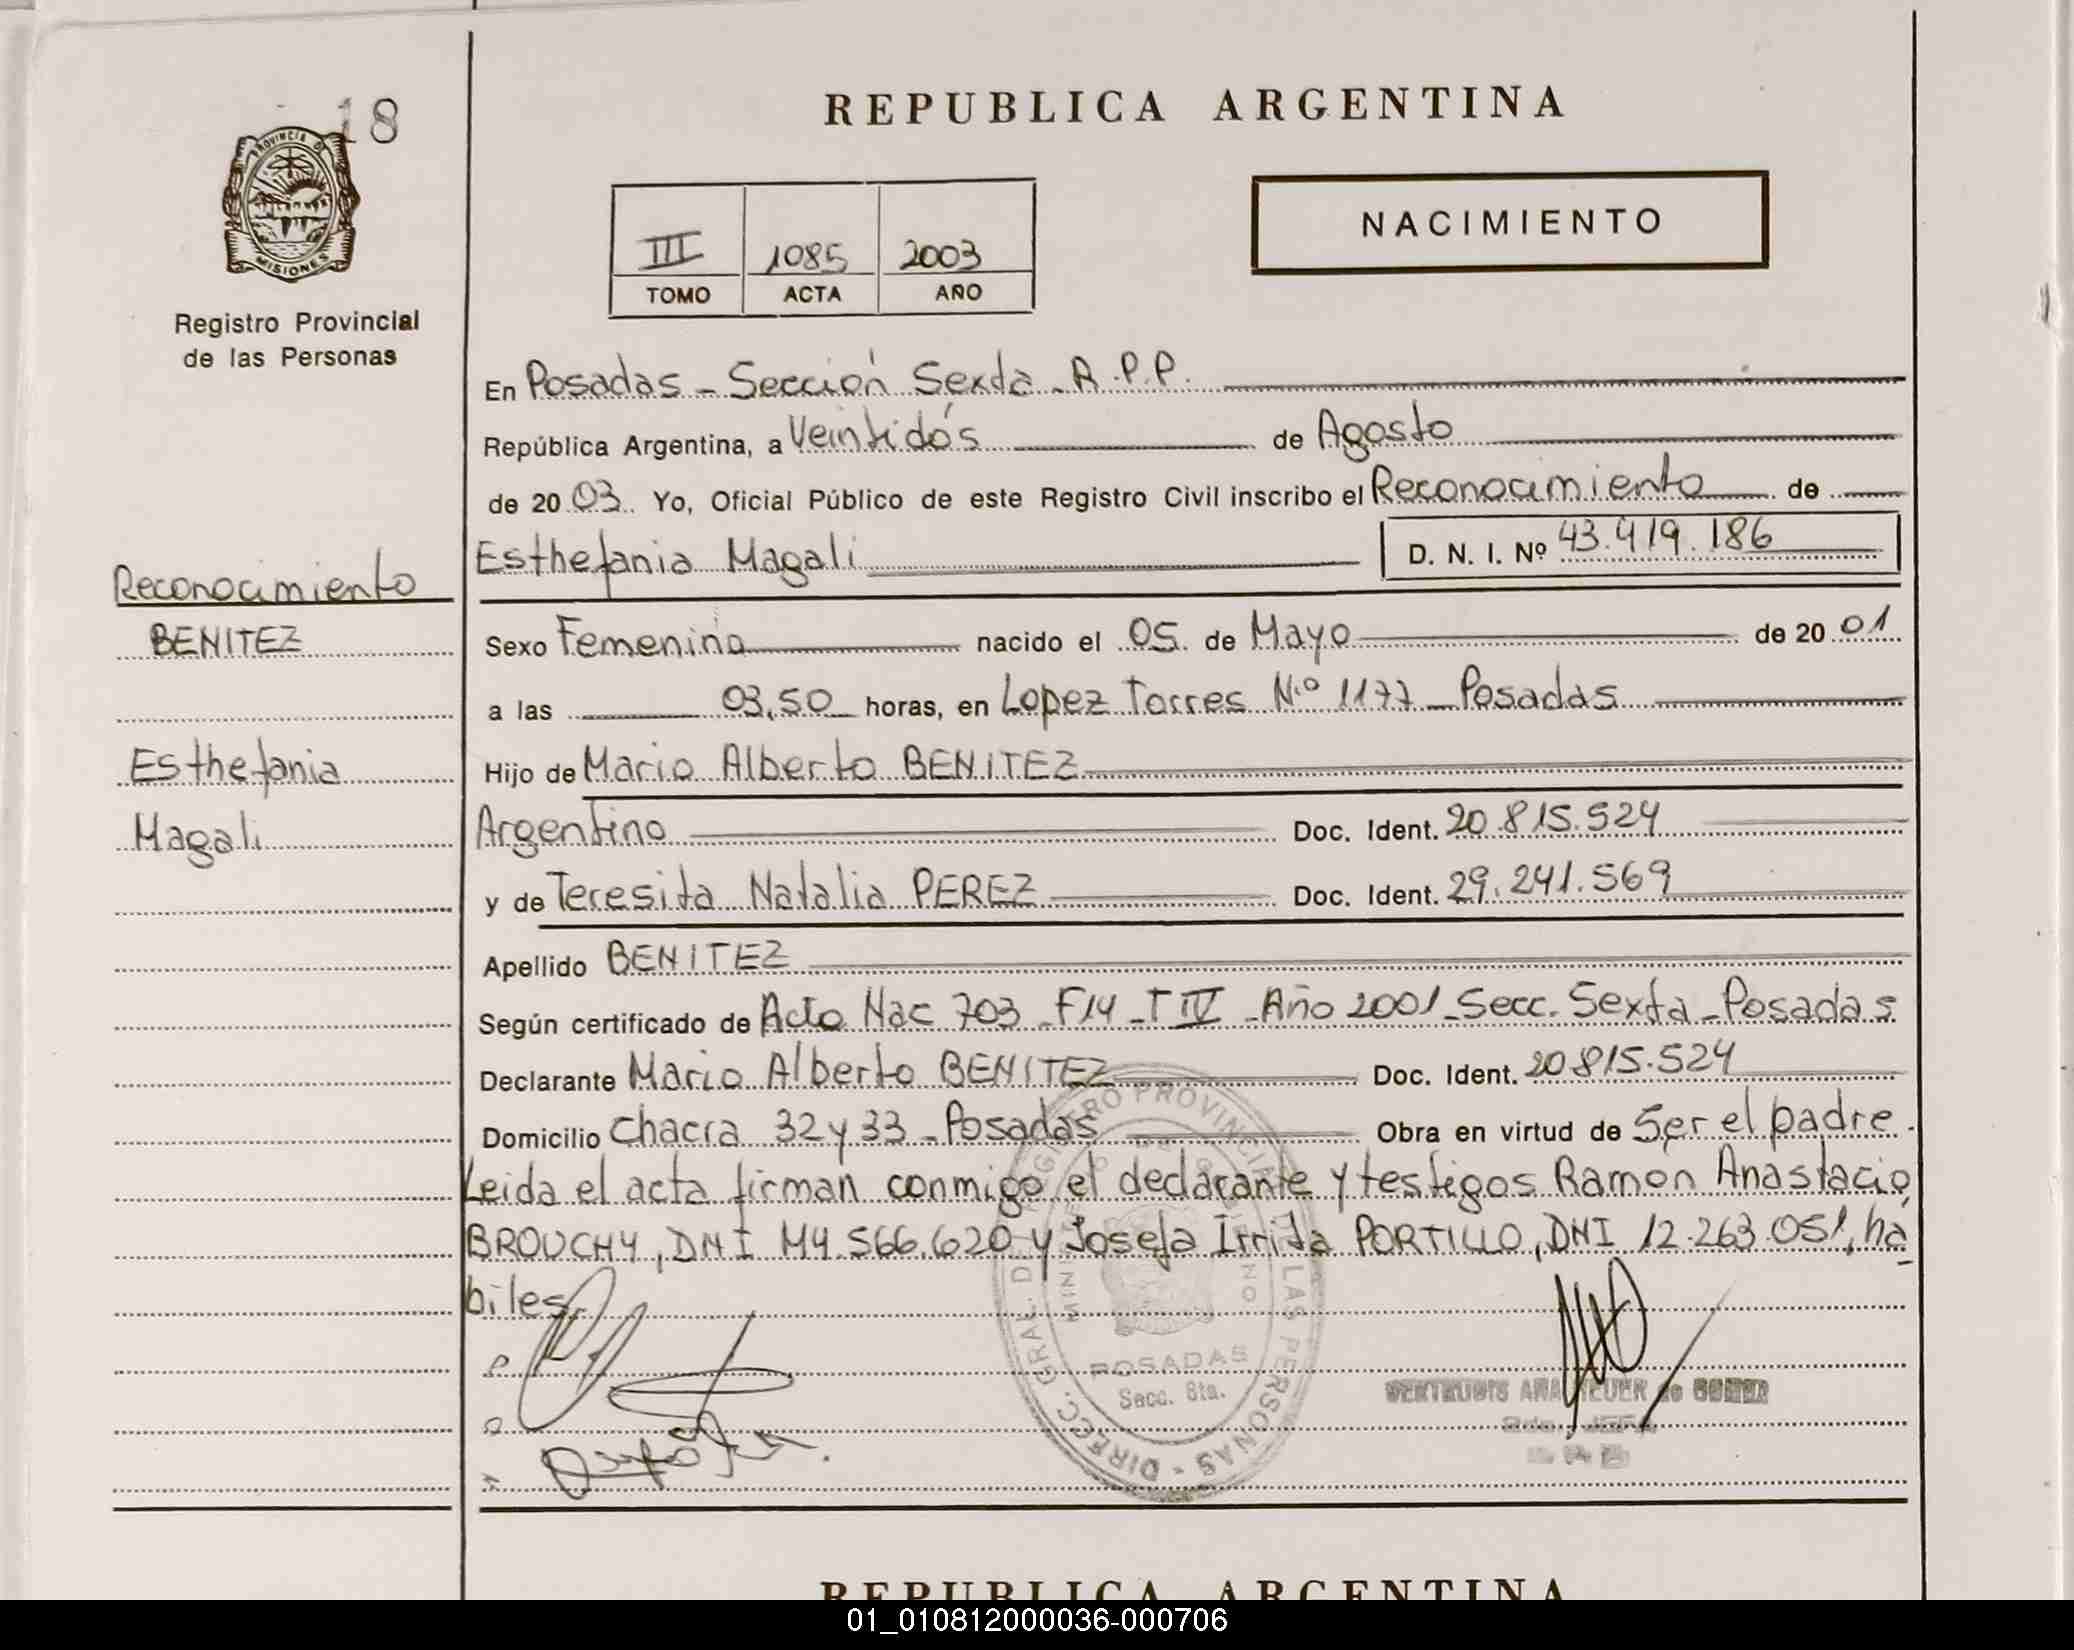 18
PROVINCIA DE
MISIONES
Registro Provincial
de las Personas
REPUBLICA ARGENTINA
NACIMIENTO
III 1085 2003
TOMO ACTA AÑO
En Posadas - Sección Sexta - A.P.P.
República Argentina, a Veintidós de Agosto
de 2003. Yo, Oficial Público de este Registro Civil inscribo el Reconocimiento de
Esthefania Magali D. N. I. Nº 43.419.186
Sexo Femenino nacido el 05 de Mayo de 2001
a las 03,50 horas, en Lopez Torres Nº 1177 - Posadas
Hijo de Mario Alberto BENITEZ
Argentino Doc. Ident. 20.815.524
y de Teresita Natalia PEREZ Doc. Ident. 29.241.569
Apellido BENITEZ
Según certificado de Acta Nac 703 - F14 - T IV - Año 2001 - Secc. Sexta - Posadas
Declarante Mario Alberto BENITEZ Doc. Ident. 20.815.524
Domicilio Chacra 32 y 33 - Posadas Obra en virtud de Ser el padre.
Leida el acta firman conmigo el declarante y testigos Ramon Anastacio
BROUCHY, DNI M4.566.620 y Josefa Irrida PORTILLO, DNI 12.263.051, há
biles.
Reconocimiento
BENITEZ
Esthefania
Magali
DIRECC. GRAL. DEL REGISTRO PROVINCIAL DE LAS PERSONAS
MINISTERIO DE GOBIERNO
POSADAS
Secc. 6ta.
REPUBLICA ARGENTINA
01_010812000036-000706